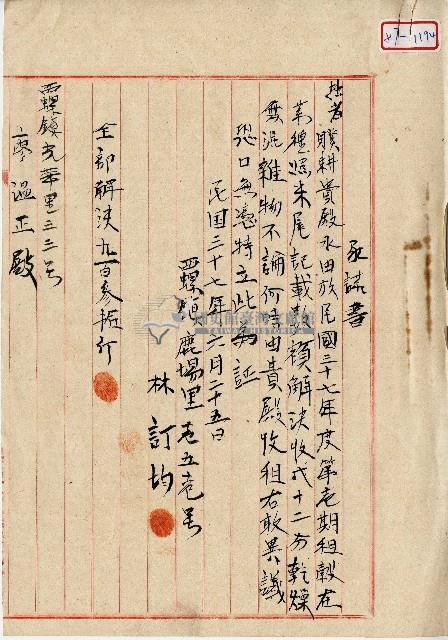 承諾書
拙者贌耕貴殿水田放民國三十七年度第壱期租穀在
莿穂照末尾記載数額解決收成十二分乾燥
無混雜物不論何時由貴殿收租右敢異議
恐口無憑特立此為証
民国三十七年六月二十五日
西螺鎮鹿場里壱五壱号
林訂均
全部解決九百参拾斤
西螺鎮光華里三三号
廖温正殿
國史館臺灣文獻館
TAIWAN HISTORICA
1194